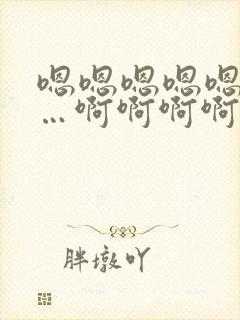 嗯嗯嗯嗯嗯
…啊啊啊啊
胖墩吖